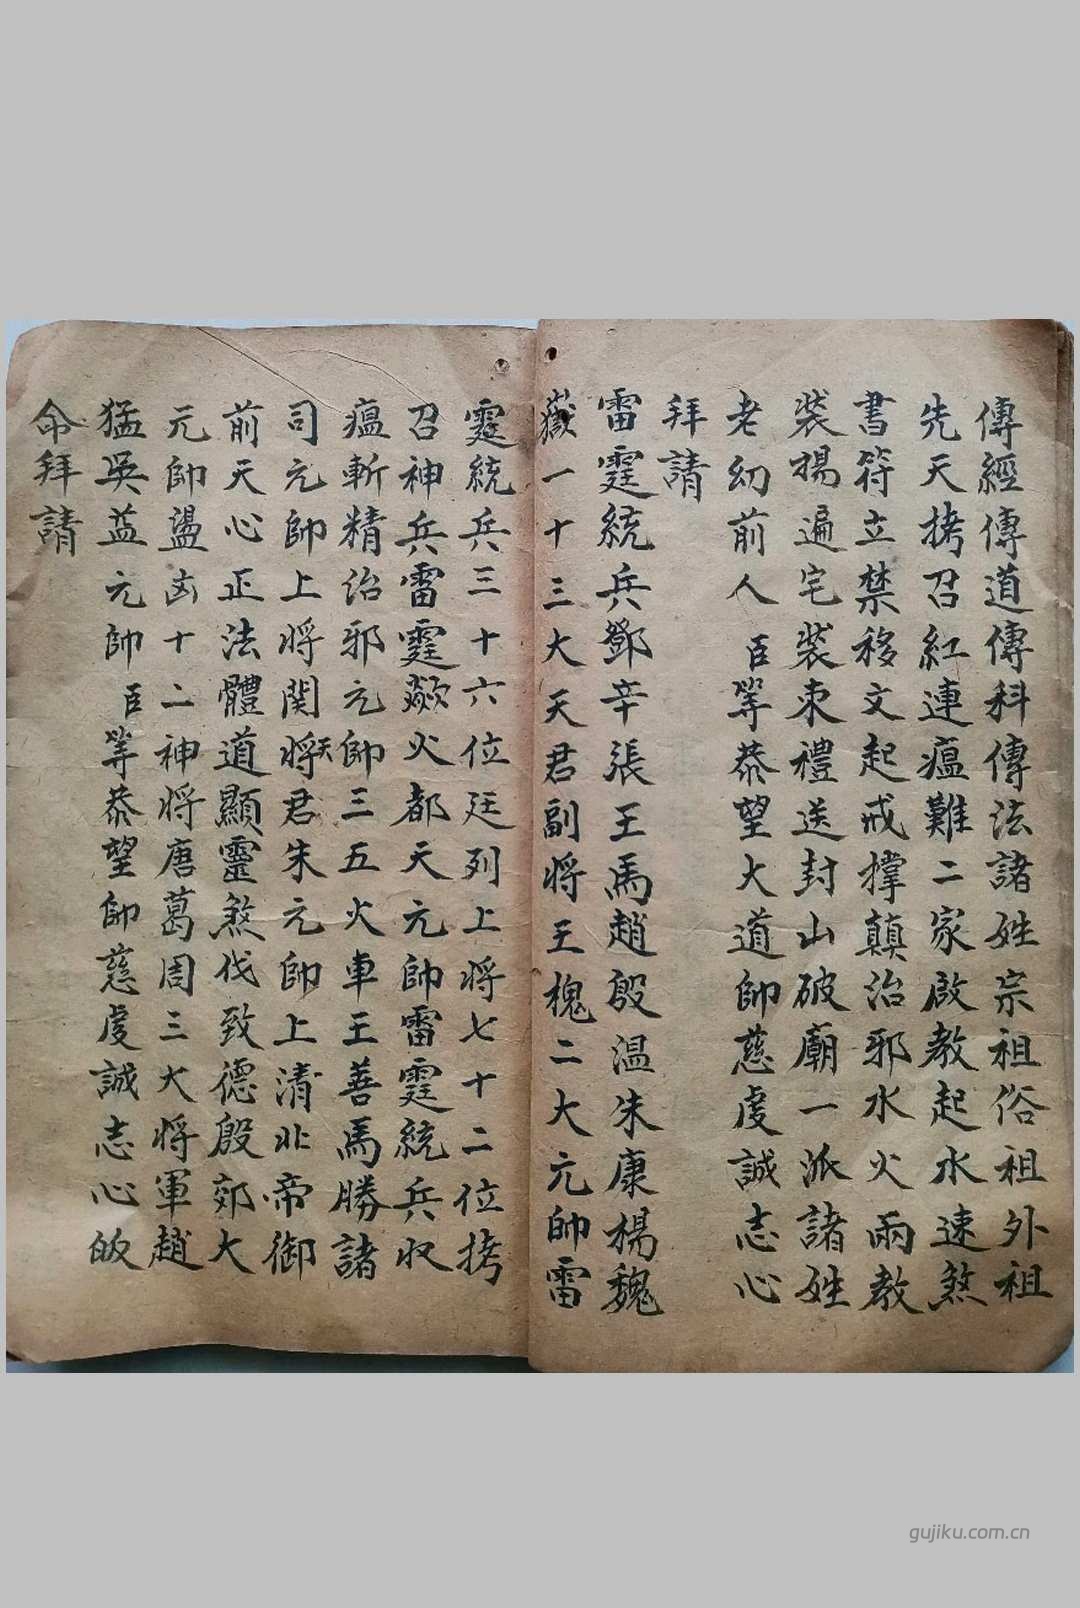 傳經傳道傳科傳法諸姓宗祖俗祖外祖
先天拷召紅連瘟難二家啟教起水速煞
書符立禁移文起戒撑顛治邪水火雨教
裝揚遍宅裝束禮送封山破廟一派諸姓
老幼前人臣等恭望大道帥慈虔誠志心
拜請
雷霆統兵鄧辛張王馬趙殷温朱康楊魏
嶽一十三大天君副將王槐二大元帥雷
霆統兵三十六位廷列上將七十二位拷
召神兵雷霆歘火都天元帥雷霆統兵收
瘟斬精治邪元帥三五火車王善馬勝諸
司元帥上将関将天君朱元帥上清北帝御
前天心正法體道顯靈煞伐致德殷郊大
元帥盪凶十二神将唐葛周三大将軍趙
猛吳益元帥臣等恭望帥慈虔誠志心皈
命拜請
gujiku.com.cn